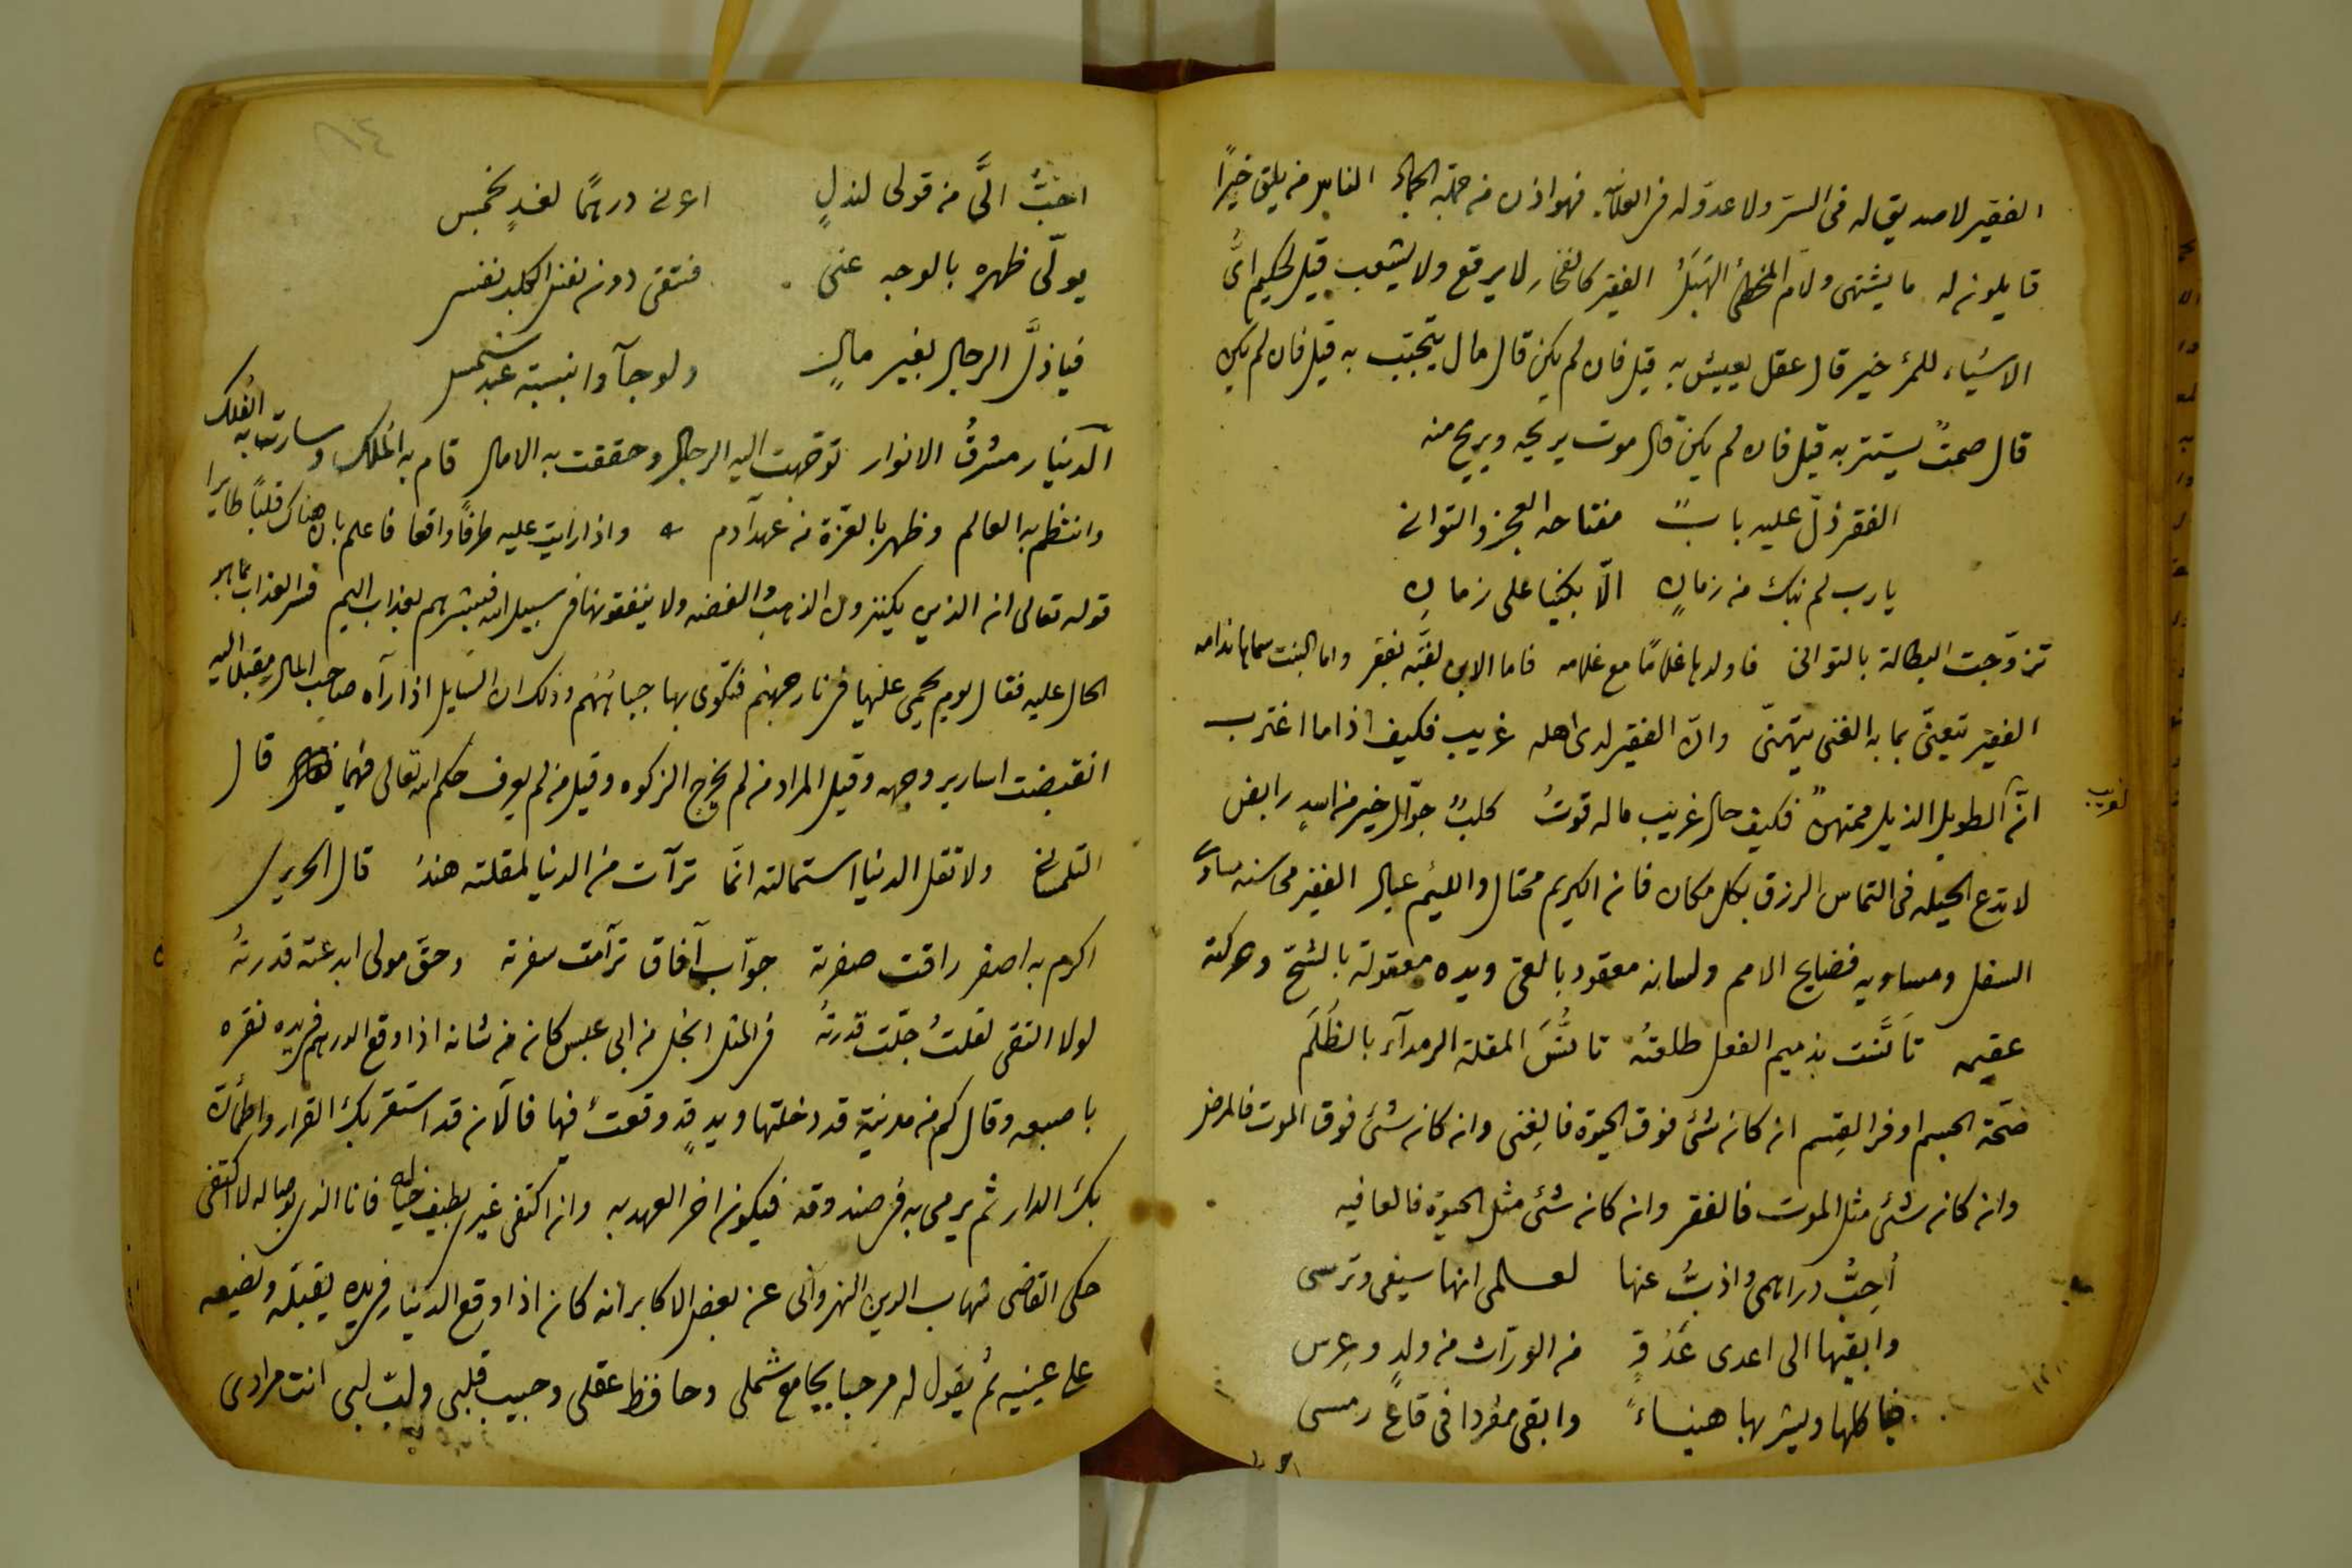 الفقير لا صديق له فى السرّ ولا عدوّ له فى العلن فهو اذن من جملة الجماد الناس من يلق خيرًا
قايلون له ما يشتهى ولام المخطئ الهبل الفقير كالفخار لا يرقع ولا يشعب قيل لحكيم اىّ
الاشياء للمرء خير قال عقل يعيش به قيل فان لم يكن قال مال يتحبّب به قيل فان لم يكن
قال صمتٌ يستتر به قيل فان لم يكن قال موت يريحه ويريح منه
الفقر ذلّ عليه بابٌ مفتاحه العجز والتوانى
يا رب لم نبك من زمانٍ الّا بكينا على زمانِ
تزوّجت البطالة بالتوانى فاولدها غلامًا مع غلامه فاما الابن لقّبه بفقر واما البنت سماها ندامه
الفقير يتعنّى بما به الغنى يتهنّى وانّ الفقير لدى اهله غريب فكيف اذا ما اغترب
انّ الطويل الذيل ممتهنٌ فكيف حال غريب ما له قوتُ كلبٌ جوّال خير من اسدٍ رابض
لغريب
لا تدع الحيله فى التماس الرزق بكل مكان فان الكريم محتال واللئيم عيال الفقير محاسنه مساوى
السفل ومساويه فضايح الامم ولسانه معقود بالعى ويده معقولة بالشحّ وحركته
عقيمه تأنّست بذميم الفعل طلعتُه تأنُّسَ المقلة الرمدآء بالظُلَم
صحّة الجسم اوفر القِسم ان كان شئ فوق الحيوة فالغنى وان كان شئ فوق الموت فالمرض
وان كان شئ مثل الموت فالفقر وان كان شئ مثل الحيوة فالعافيه
أحبُّ دراهمى واذبُّ عنها لعلمى انها سيفى وترسى
وابقيها الى اعدى عَدُوٍّ من الورّاث من ولدٍ وعِرس
فياكلها ويشربها هنيساءً وابقى مفردا فى قاع رمسى
احبُّ الىَّ من قولى لنذلٍ اعرنى درهمًا لغدٍ بخمس
يولّى ظهره بالوجه عنى فتبقى دون نفس الكلب نفسى
فيا ذلَّ الرجال بغير مالٍ ولو جآوا بنسبة عبد شمس
الدينار مشرقُ الانوار توجّهت اليه الرجال وحققت به الامال قام به الملك وسارت به الفلك
وانتظم به العالم وظهر بالعزّة من عهد آدم واذا رايت عليه طرفًا واقعا فاعلم بان هناك قلبًا طايرا
قوله تعالى ان الذين يكنزون الذهب والفضه ولا ينفقونها فى سبيل الله فبشرهم بعذاب اليم فسّر العذاب بما هو
الحال عليه فقال يوم يحمى عليها فى نار جهنم فتكوى بها جباههم وذلك ان السايل اذا رآه صاحب المال مقبلا اليه
انقبضت اسارير وجهه وقيل المراد من لم يخرج الزكوه وقيل من لم يعرف حكم الله تعالى فيها قال
ولا تقل الدنيا استمالته انّما ترآت من الدنيا لمقلته هندُ قال الحريرى
اكرم به اصفر راقت صفرته جوّاب آفاق ترآمت سفرته وحقّ مولى ابدعته قدرتهُ
لولا التقى لقلتُ جلّت قدرتهُ فى المثل ابخل من ابى عبس كان من شانه اذا وقع الدرهم فى يده نقره
باصبعه وقال كم من مدينة قد دخلتها ويدٍ قد وقعتَ فيها فالآن قد استقر بك القرار واطمأنّت
بك الدار ثم يرمى به فى صندوقه فيكون اخر العهد به وان اكتفى غيرى بطيف خياله فانا الذى بوصاله لا اكتفى
حكى القاضى شهاب الدين النهروانى عن بعض الاكابر انه كان اذا وقع الدينار فى يده يقبّله ويضيعه
على عينيه ثم يقول له مرحبا بجامع شملى وحافظ عقلى وحبيب قلبى ولبّ لبى انت مرادى